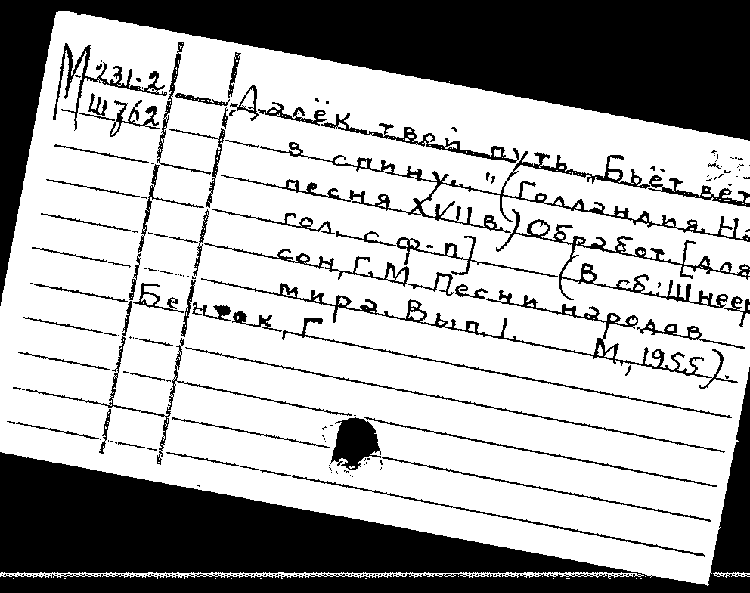 М 231-2
Ш762
Далёк твой путь. „Бьёт вет
в спину..." (Голландия. На
песня XVII в.) Обработ. [для
гол. с ф-п] (В сб.: Шнеер
сон, Г. М. Песни народов
мира. Вып. 1. М., 1955).